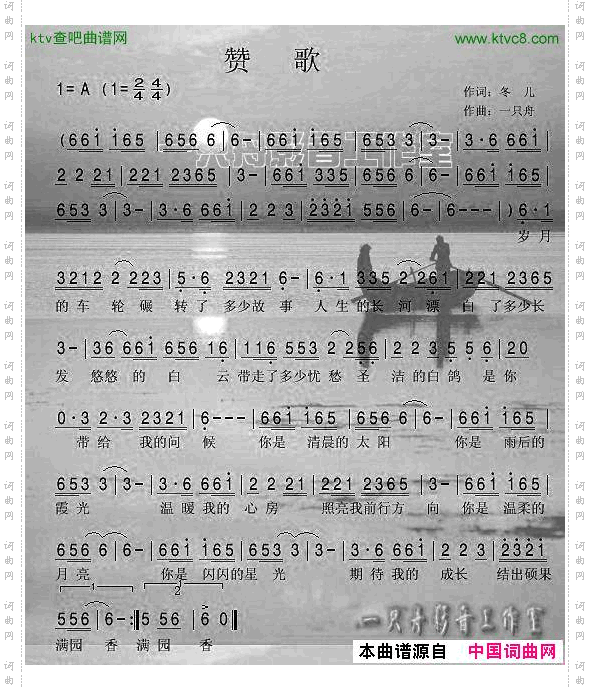 ktv查吧曲谱网
www.ktvc8.com
赞 歌
1=A (1=2/4 4/4)
作词：冬 儿
作曲：一只舟
(661 165 | 656 6 | 6- | 661 165 | 653 3 | 3- | 3·6 661 |
2 2 21 | 221 2365 | 3- | 661 335 | 656 6 | 6- | 661 165 |
653 3 | 3- | 3·6 661 | 2 2 3 | 2321 556 | 6- | 6--- | ) 6·1
岁 月
3212 2 223 | 5·6 2321 6- | 6·1 335 2 261 | 221 2365
的车 轮 碾 转了 多少故 事 人生的长 河 漂 白 了多少长
3- | 36 661 656 16 | 116 553 2 256 | 2 2 35 3 | 20
发 悠悠 的 白 云 带走了多少忧 愁 圣 洁 的白鸽 是 你
0·3 2·3 2321 | 6--- | 661 165 | 656 6 | 6- | 661 165 |
带给 我的问 候 你是 清晨的 太 阳 你是 雨后的
653 3 | 3- | 3·6 661 | 2 2 21 | 221 2365 | 3- | 661 165 |
霞光 温 暖 我的 心 房 照亮我前行方 向 你是 温柔的
656 6 | 6- | 661 165 | 653 3 | 3- | 3·6 661 | 2 2 3 | 2321
月 亮 你是 闪闪的星 光 期 待 我的 成长 结出硕果
1 2
556 6 | 6- :| 5 556 | 6 0 ||
满园 香 满 园 香
一只舟影音工作室
本曲谱源自 中国词曲网